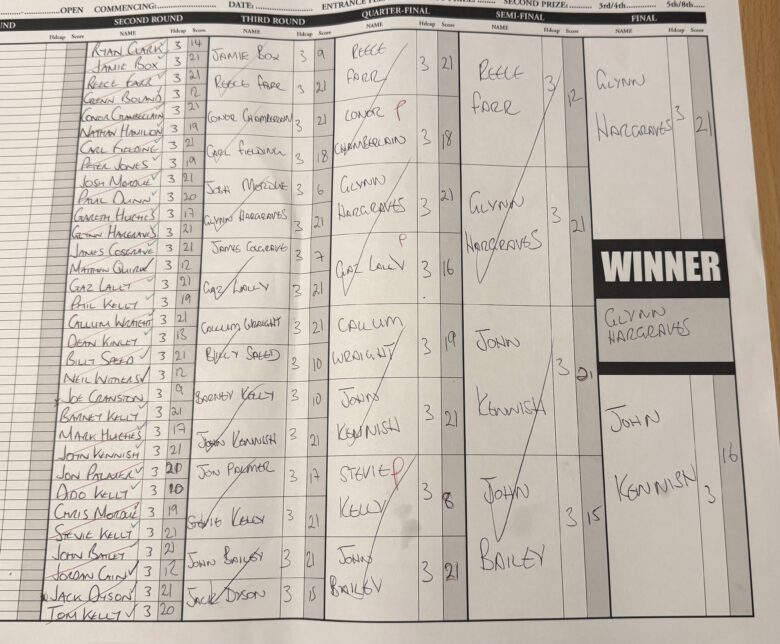 OPEN COMMENCING: DATE: SECOND PRIZE: 3rd/4th 5th/8th
SECOND ROUND THIRD ROUND QUARTER-FINAL SEMI-FINAL FINAL
Hdcap Score NAME Hdcap Score NAME Hdcap Score NAME Hdcap Score NAME Hdcap Score NAME Hdcap Score
RYAN CLARK 3 14
JAMIE BOX 3 21
REECE FARR 3 21
GLENN BOLAND 3 12
CONOR CHAMBERLAIN 3 21
NATHAN HANLON 3 19
CARL FIELDING 3 21
PETER JONES 3 19
JOSH MORDUE 3 21
PAUL QUINN 3 20
GARETH HUGHES 3 17
GLYNN HARGRAVES 3 21
JAMES COSGRAVE 3 21
MATTHEW QUIRK 3 12
GAZ LALLY 3 21
PHIL KELLY 3 19
CALLUM WRAIGHT 3 21
DEAN KINLEY 3 13
BILLY SPEED 3 21
NEIL WITHERS 3 12
JOE CRANSTON 3 9
BARNEY KELLY 3 21
MARK HUGHES 3 17
JOHN KENNISH 3 21
JON PALMER 3 20
ADO KELLY 3 10
CHRIS MORDUE 3 19
STEVIE KELLY 3 21
JOHN BAILEY 3 21
JORDAN CAIN 3 12
JACK DYSON 3 21
TOM KELLY 3 20
JAMIE BOX 3 9
REECE FARR 3 21
CONOR CHAMBERLAIN 3 21
CARL FIELDING 3 18
JOSH MORDUE 3 6
GLYNN HARGRAVES 3 21
JAMES COSGRAVE 3 7
GAZ LALLY 3 21
CALLUM WRAIGHT 3 21
BILLY SPEED 3 10
BARNEY KELLY 3 10
JOHN KENNISH 3 21
JON PALMER 3 17
STEVIE KELLY 3 21
JOHN BAILEY 3 21
JACK DYSON 3 15
REECE
FARR 3 21
CONOR P
CHAMBERLAIN 3 18
GLYNN
HARGRAVES 3 21
P
GAZ LALLY 3 16
CALLUM
WRAIGHT 3 19
JOHN
KENNISH 3 21
STEVIE P
KELLY 3 8
JOHN
BAILEY 3 21
REECE
FARR 3 12
GLYNN
HARGRAVES 3 21
JOHN
KENNISH 3 21
JOHN
BAILEY 3 15
GLYNN
HARGRAVES 3 21
WINNER
GLYNN
HARGRAVES
JOHN
KENNISH 3 16